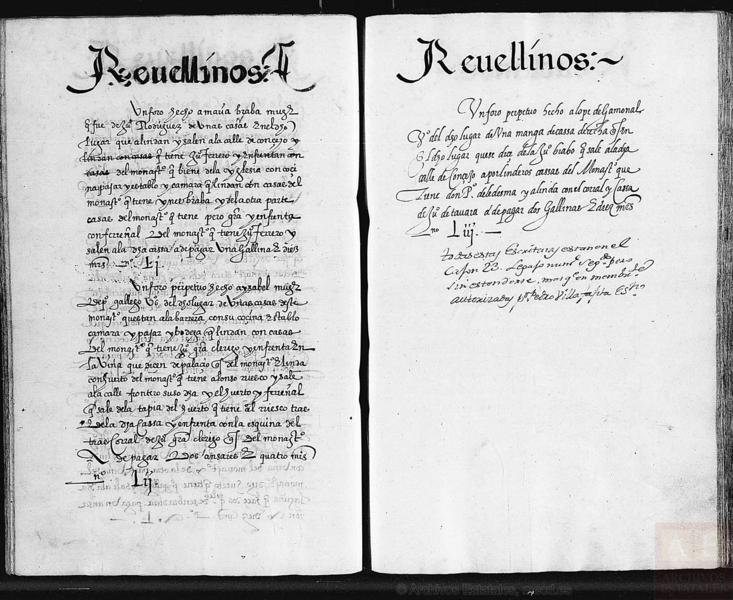 Reuellinos:
Un foro hecho a maria braba muger
q fue de Ju° Rodriguez de unas casas en el dho
lugar que alindan y salen ala calle de concejo y
lindan con casas q tiene Ju° ferrero y enfrentan con
casas del monast° q tiene dela yglesia con coci
na pajar y establo y camara q lindan con casas del
monast° q tiene ynes braba y dela otra parte
casas del monast° q tiene pero gra y enfrenta
con ferreñal del monast° q tiene Ju° ferrero y
salen ala dha cassa a de pagar una gallina E diez
mrs n° Lj
Un foro perpetuo hecho a ysabel muger
de p° gallego v° del dho lugar de unas casas deste
monast° que estan ala barrera con su cocina establo
camara y pajar y bodega q lindan con casas
del monast° q tiene Ju° gra clerigo y enfrenta en
la viña que dizen de palacio q es del monast° E linda
con huerto del monast° q tiene alonso riesco y sale
ala calle frontero suso dha y el huerto y ferreñal
q sale dela tapia del huerto q tiene al riesco tras
dela dha cassa y enfrenta con la esquina del
tras corral de Ju° gra clerigo q es del monast°
A de pagar dos ansares E quatro mrs
n° Lij
Reuellinos:~
Un foro perpetuo hecho a lope de gamonal
v° del dho lugar de una manga de cassa de tierra q es en
el dho lugar que se dize dela Ju° brabo q sale ala dha
calle de Concejo a por linderos cassas del Monast° que
tiene don P° de ledesma y alinda con el corral y Cassa
de Ju° de tauara a de pagar dos Gallinas E diez mrs
n° Liij.
todas estas Escrituras estan en el
Cajon 23. Legajo num°
sin estenderse, mas q en membrete
autorizadas por Pedro Villafafila Es no
© Archivos Estatales, mecd.es